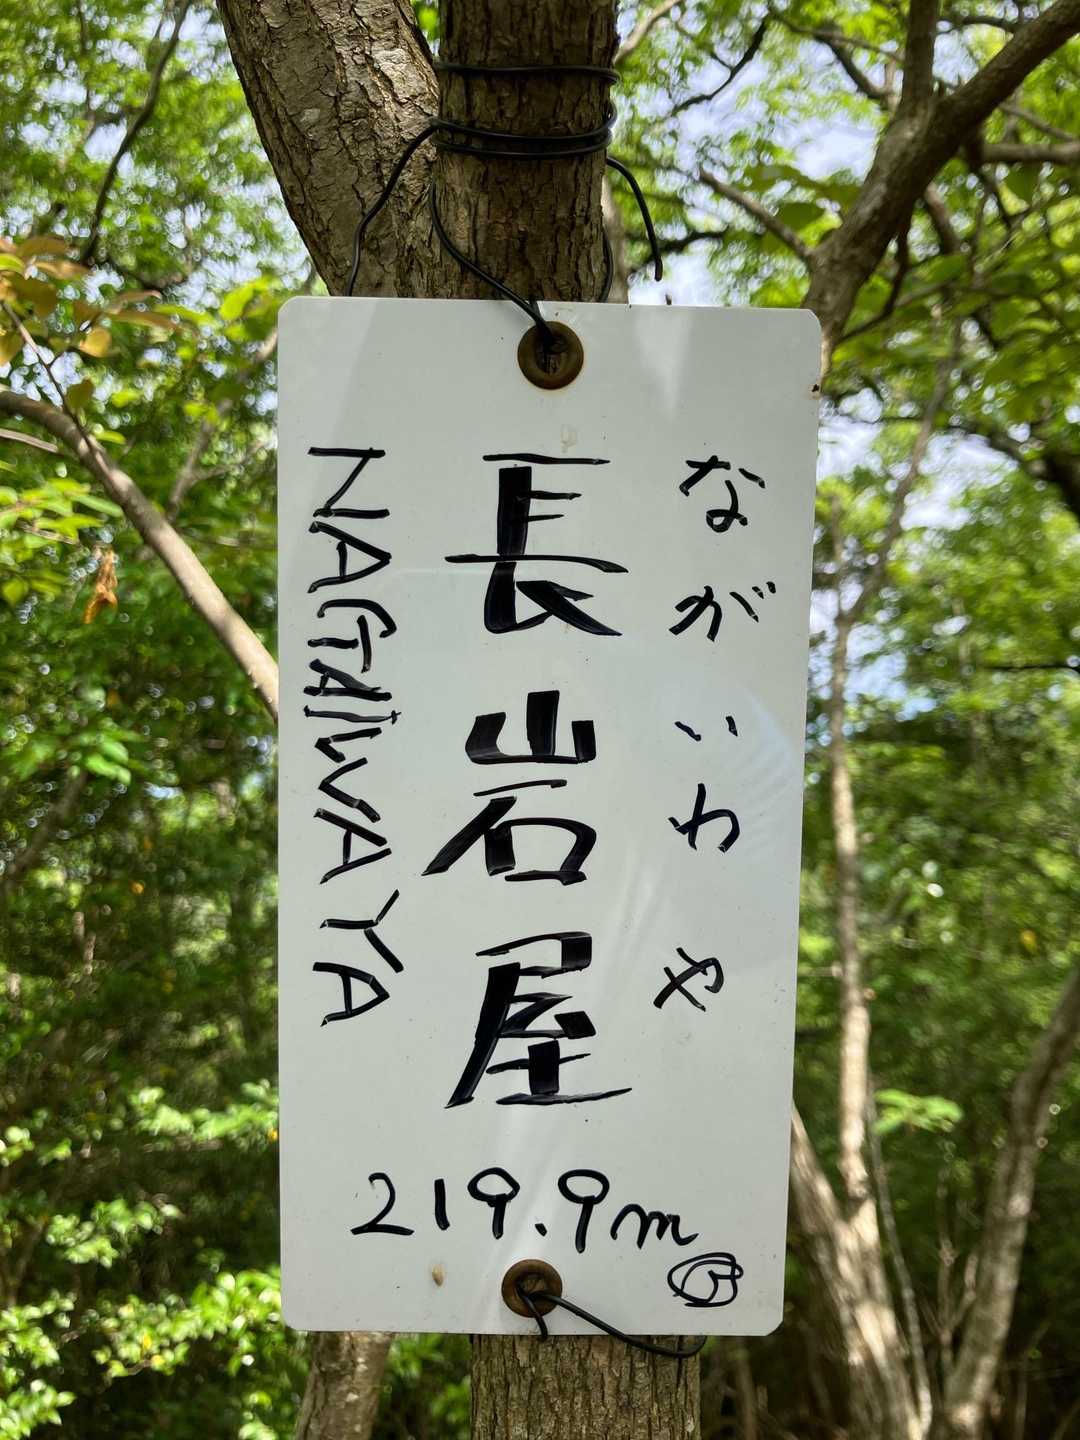 ながいわや
長岩屋
NAGAIWAYA
219.9m